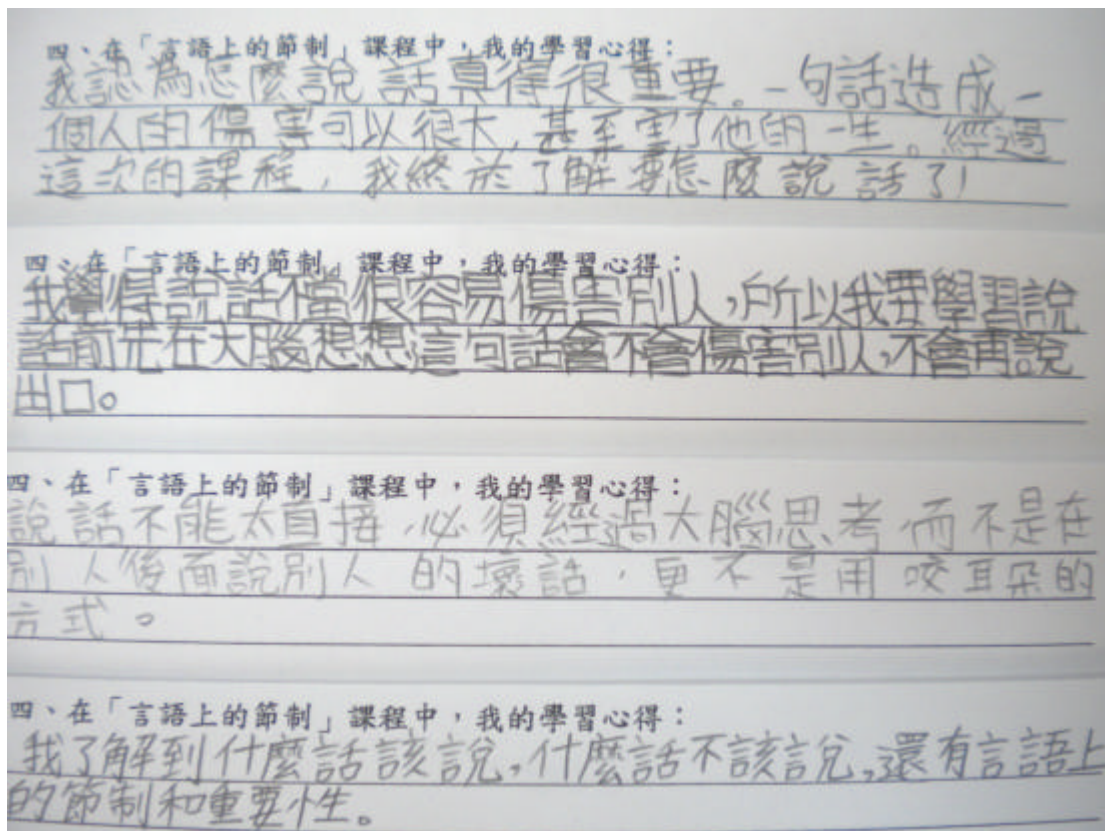 四、在「言語上的節制」課程中，我的學習心得：
我認為怎麼說話真得很重要。一句話造成一
個人的傷害可以很大，甚至害了他的一生。經過
這次的課程，我終於了解要怎麼說話了!
四、在「言語上的節制」課程中，我的學習心得：
我覺得說話不當很容易傷害別人，所以我要學習說
話前先在大腦想想這句話會不會傷害別人，不會再說
出口。
四、在「言語上的節制」課程中，我的學習心得：
說話不能太直接，必須經過大腦思考，而不是在
別人後面說別人的壞話，更不是用咬耳朵的
方式。
四、在「言語上的節制」課程中，我的學習心得：
我了解到什麼話該說，什麼話不該說，還有言語上
的節制和重要性。